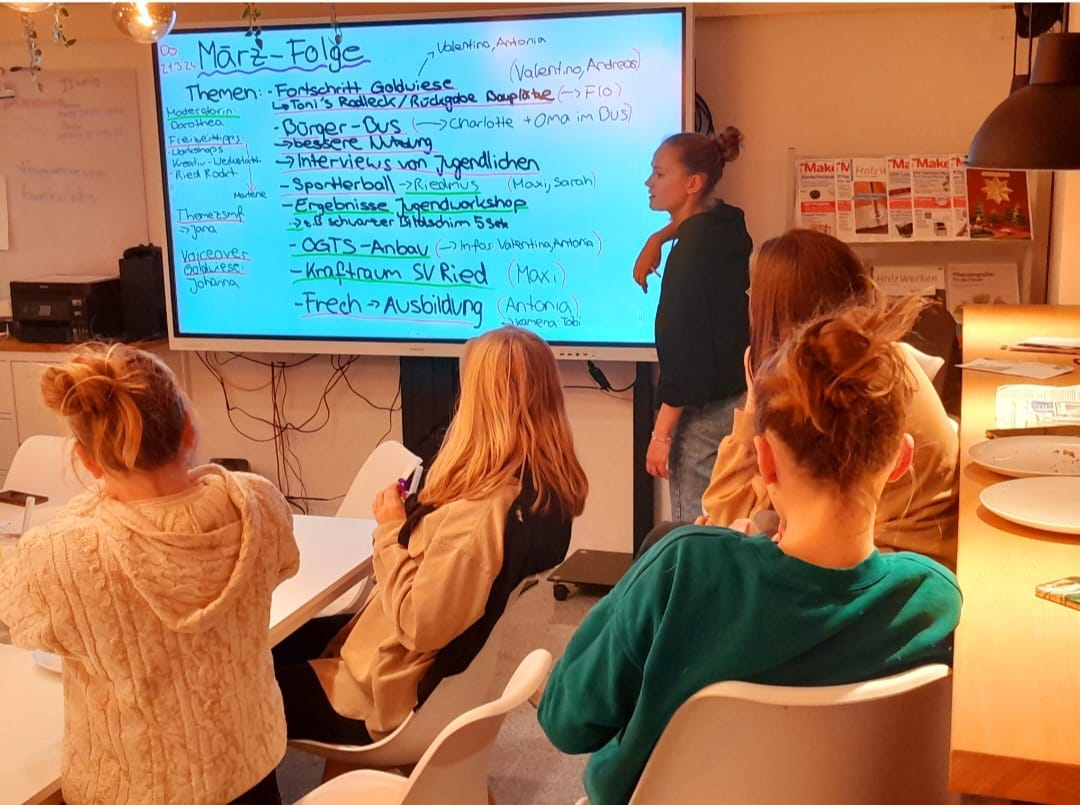 Do
21.3.24
März-Folge
Valentina, Antonia
Themen:
- Fortschritt Goldwiese
(Valentina, Andreas)
↳ Toni's Radleck/Rückgabe Bauplätze (→ Flo)
- Bürger-Bus (→ Charlotte + Oma im Bus)
→ bessere Nutzung
→ Interviews von Jugendlichen
- Sportlerball → Riedmus (Maxi, Sarah)
- Ergebnisse Jugendworkshop
schwarzer Bildschirm 5 Sek
- OGTS-Anbau (→ Infos Valentina, Antonia)
- Kraftraum SV Ried (Maxi)
- Frech → Ausbildung (Antonia)
→ Kamera Tobi
Moderatorin:
Dorothea
Freizeittipps:
- Workshops
Kreativ-Werkstatt
- Ried Rockt
Marlene
→ Jana
Goldwiese:
Johanna
Make
Holz
Make
Make
HolzWerken